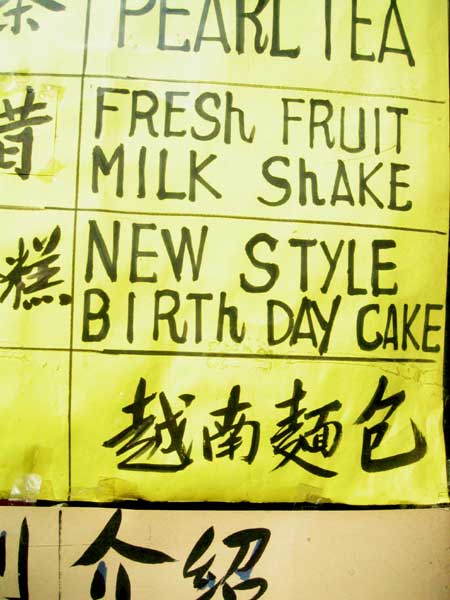 PEARL TEA
昔 FRESh FRUIT
MILK ShAKE
糕 NEW STYLE
BIRTh DAY CAKE
越南麵包
介紹